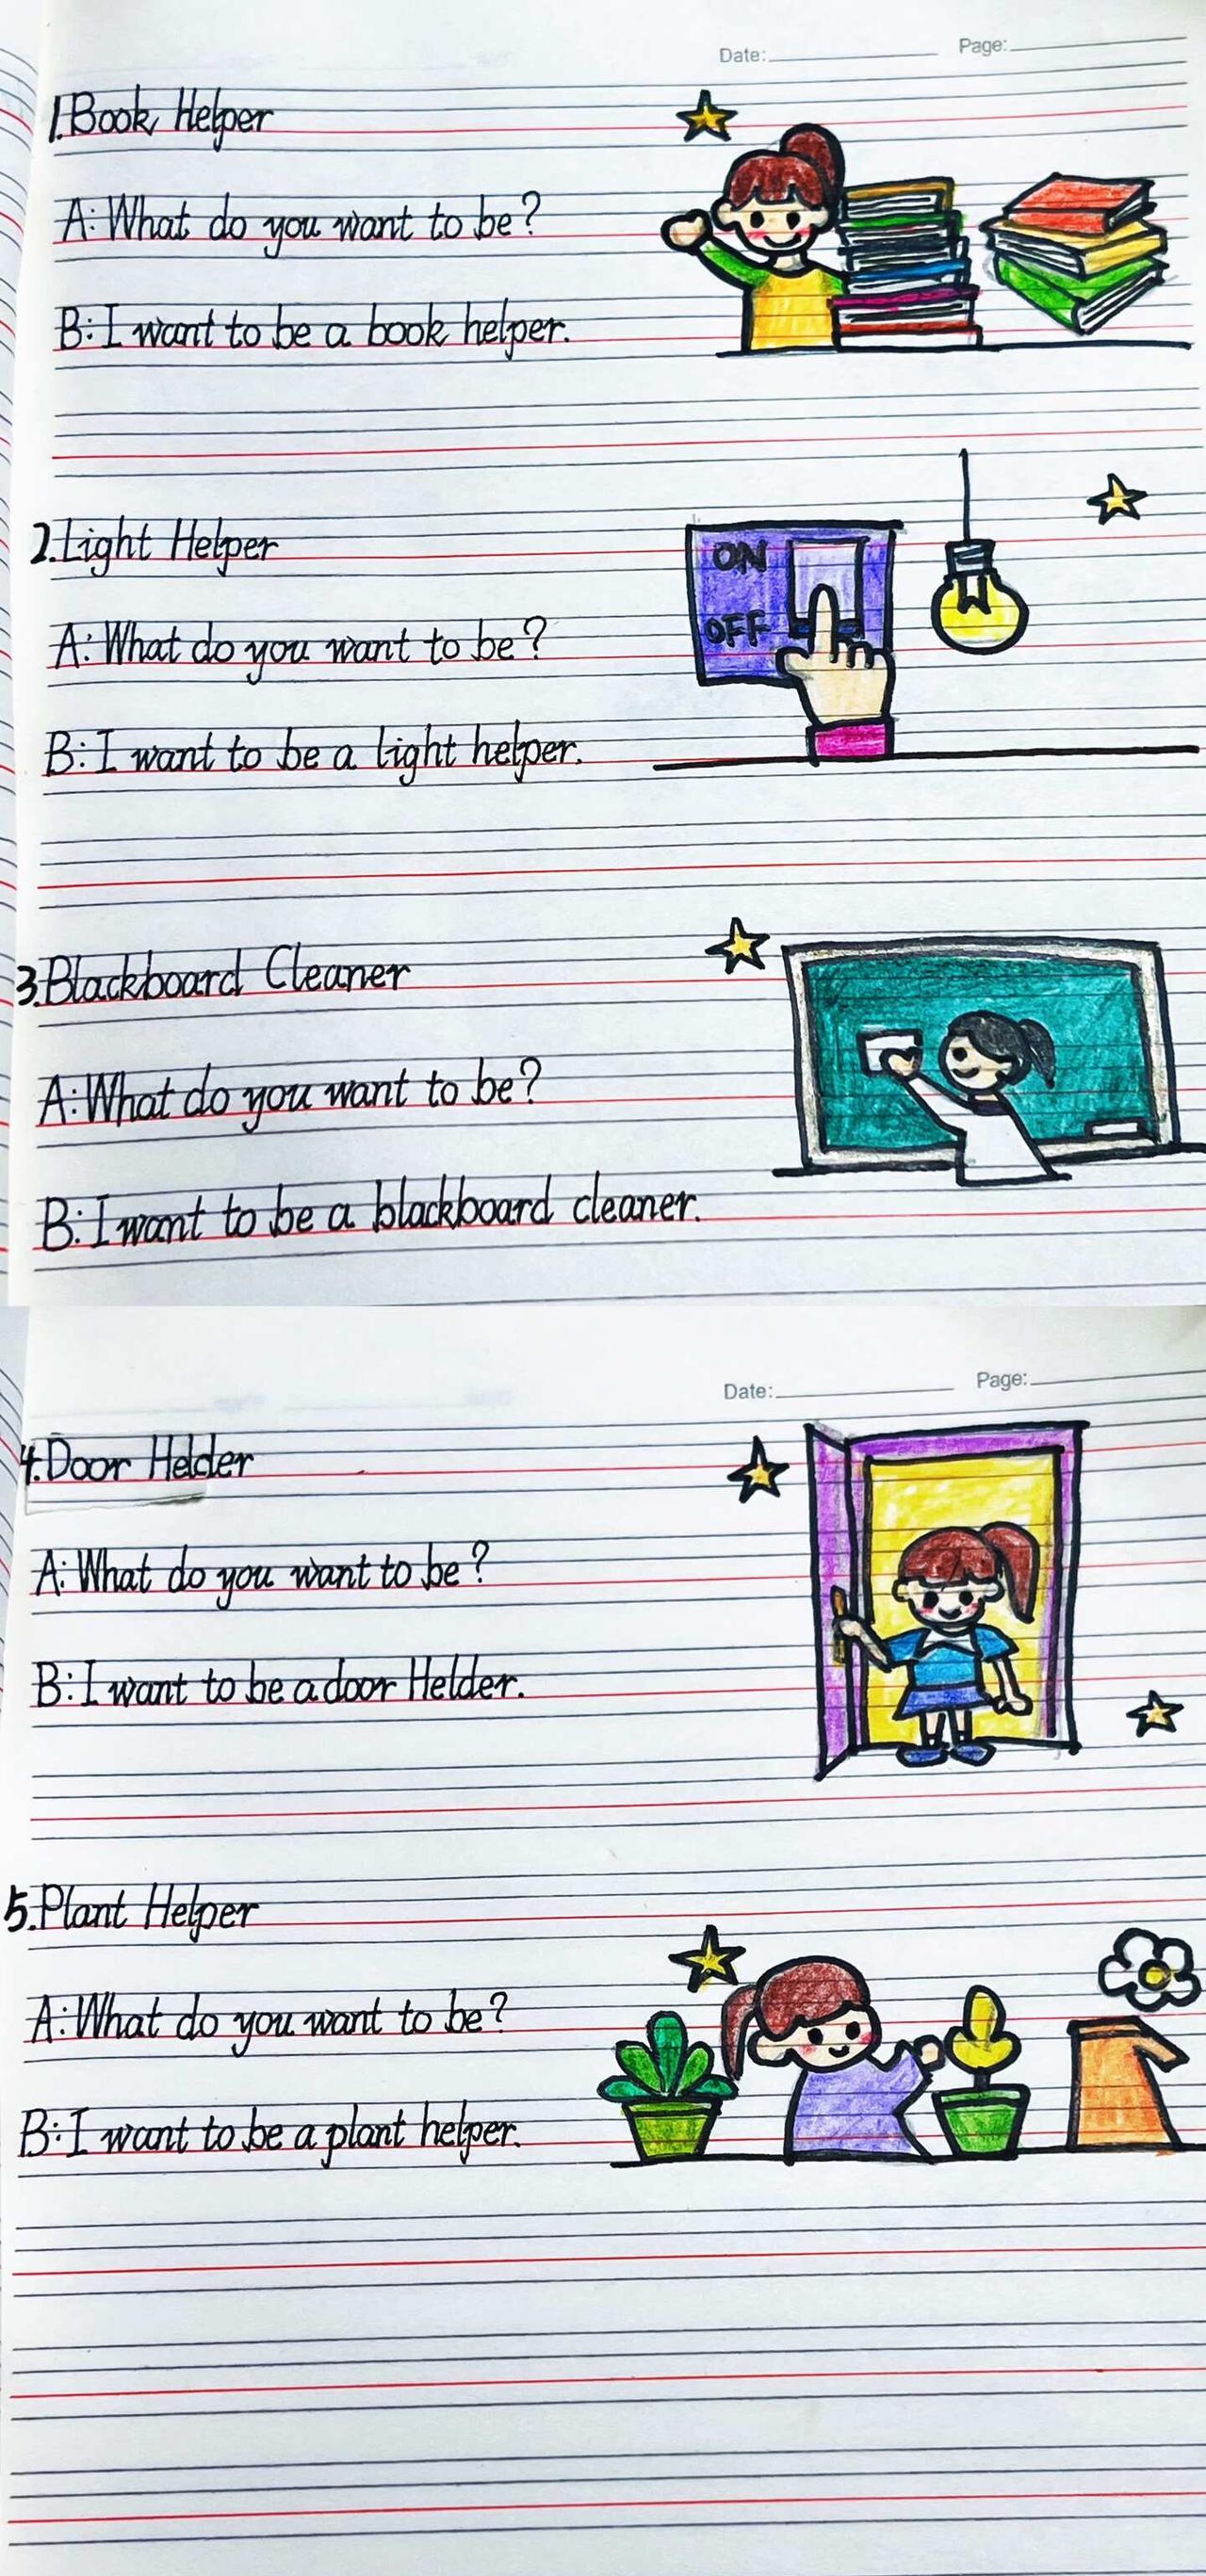 Date: Page:
1.Book Helper
A: What do you want to be?
B: I want to be a book helper.
2.Light Helper
ON
OFF
A: What do you want to be?
B: I want to be a light helper.
3.Blackboard Cleaner
A: What do you want to be?
B: I want to be a blackboard cleaner.
Date: Page:
4.Door Helder
A: What do you want to be?
B: I want to be a door Helder.
5.Plant Helper
A: What do you want to be?
B: I want to be a plant helper.